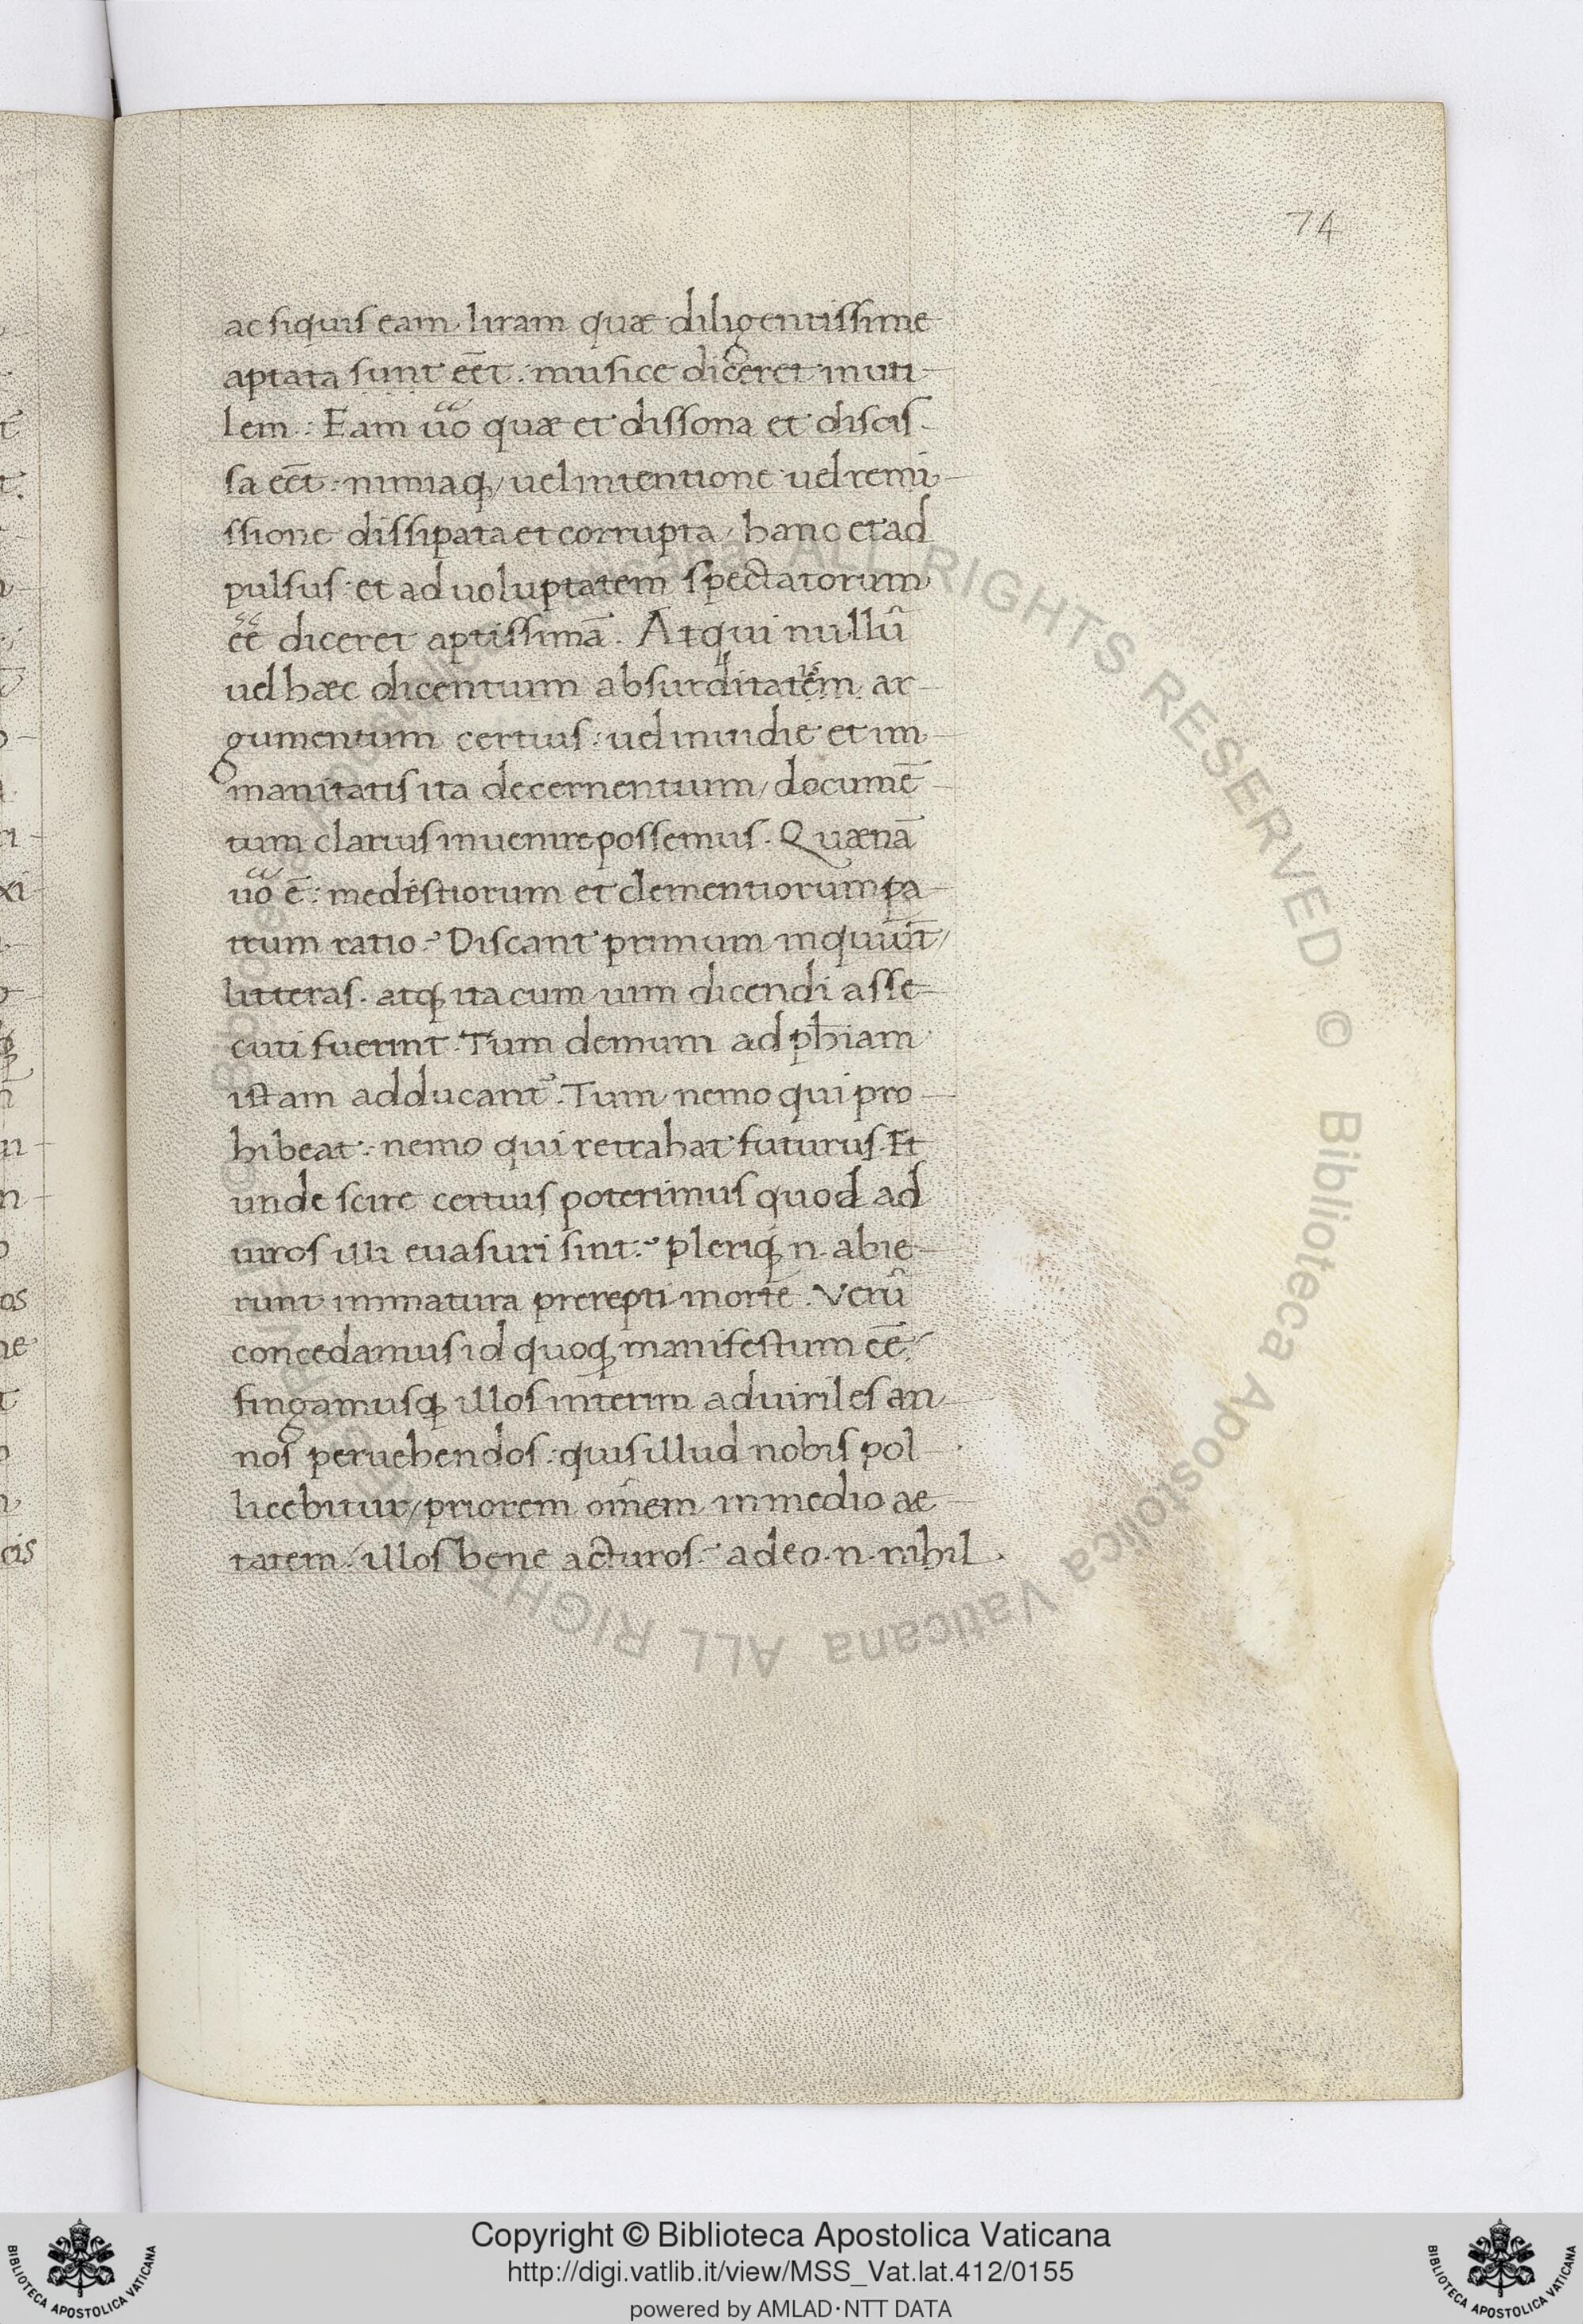 74
ac siquis eam liram quæ diligentissime
aptata sunt eēt: musice diceret inuti
lem: Eam u͞o quæ et dissona et discis
sa eēt: nimiaq; / uel intentione uel remi
ssione dissipata et corrupta / hanc et ad
pulsus et ad uoluptatem spectatorum
ēe diceret aptissimā. Atqui nullū
uel hæc dicentium absurditatem ar
gumentum certius: uel inuidie et im
manitatis ita decernentium / documē
tum clarius inuenire possemus. Quænā
u͞o ē: modestiorum et clementiorum pa
trum ratio? Discant primum inquiūt /
litteras. atq; ita cum uim dicendi asse
cuti fuerint. Tum demum ad ph̄iam
istam adducant᷑. Tum nemo qui pro
hibeat: nemo qui retrahat futurus. Et
unde scire certius poterimus quod ad
uiros illi euasuri sint? pleriq; n. abie
runt inmatura prerepti morte. Verū
concedamus id quoq; manifestum ēe:
fingamusq; illos interim ad uiriles an
nos peruehendos: quis illud nobis pol
licebitur / priorem om̄em in medio ae
tatem / illos bene acturos? adeo. n. nihil
Copyright © Biblioteca Apostolica Vaticana
http://digi.vatlib.it/view/MSS_Vat.lat.412/0155
powered by AMLAD·NTT DATA
BIBLIOTECA APOSTOLICA VATICANA
BIBLIOTECA APOSTOLICA VATICANA